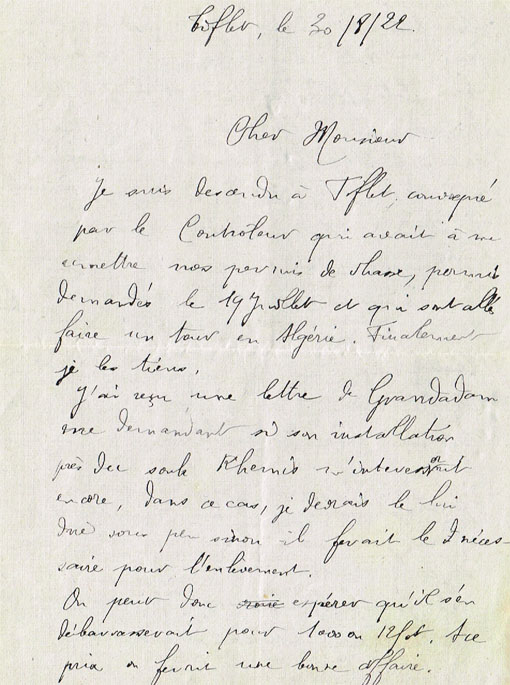 Tiflet, le 30/8/22.
Cher Monsieur
Je suis descendu à Tiflet, convoqué
par le Contrôleur qui avait à me
remettre nos permis de chasse, permis
demandés le 19 Juillet et qui sont allé
faire un tour en Algérie. Finalement
je les tiens.
J'ai reçu une lettre de Grandadam
me demandant si son installation
près du souk Khemis m'intéressait
encore, dans ce cas, je devais le lui
dire sous peu sinon il ferait le néces-
saire pour l'enlèvement.
On peut donc espérer qu'il s'en
débarrasserait pour 1000 ou 12
prix on ferait une bonne affaire.